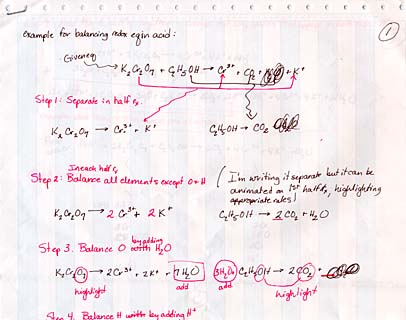 Example for balancing redox eqn in acid:
1
Given eq
K₂Cr₂O₇ + C₂H₅OH → Cr³⁺ + CO₂ + K⁺
Step 1: Separate in half r
K₂Cr₂O₇ → Cr³⁺ + K⁺ C₂H₅OH → CO₂
In each half r
Step 2: Balance all elements except O + H
(I'm writing it separate but it can be
animated on 1st half r, highlighting
appropriate rules)
K₂Cr₂O₇ → 2 Cr³⁺ + 2 K⁺ C₂H₅OH → 2 CO₂ + H₂O
Step 3. Balance O by adding with H₂O
K₂Cr₂O₇ → 2Cr³⁺ + 2K⁺ + 7H₂O 3H₂O + C₂H₅OH → 2CO₂ +
highlight add add highlight
Step 4. Balance H with by adding H⁺